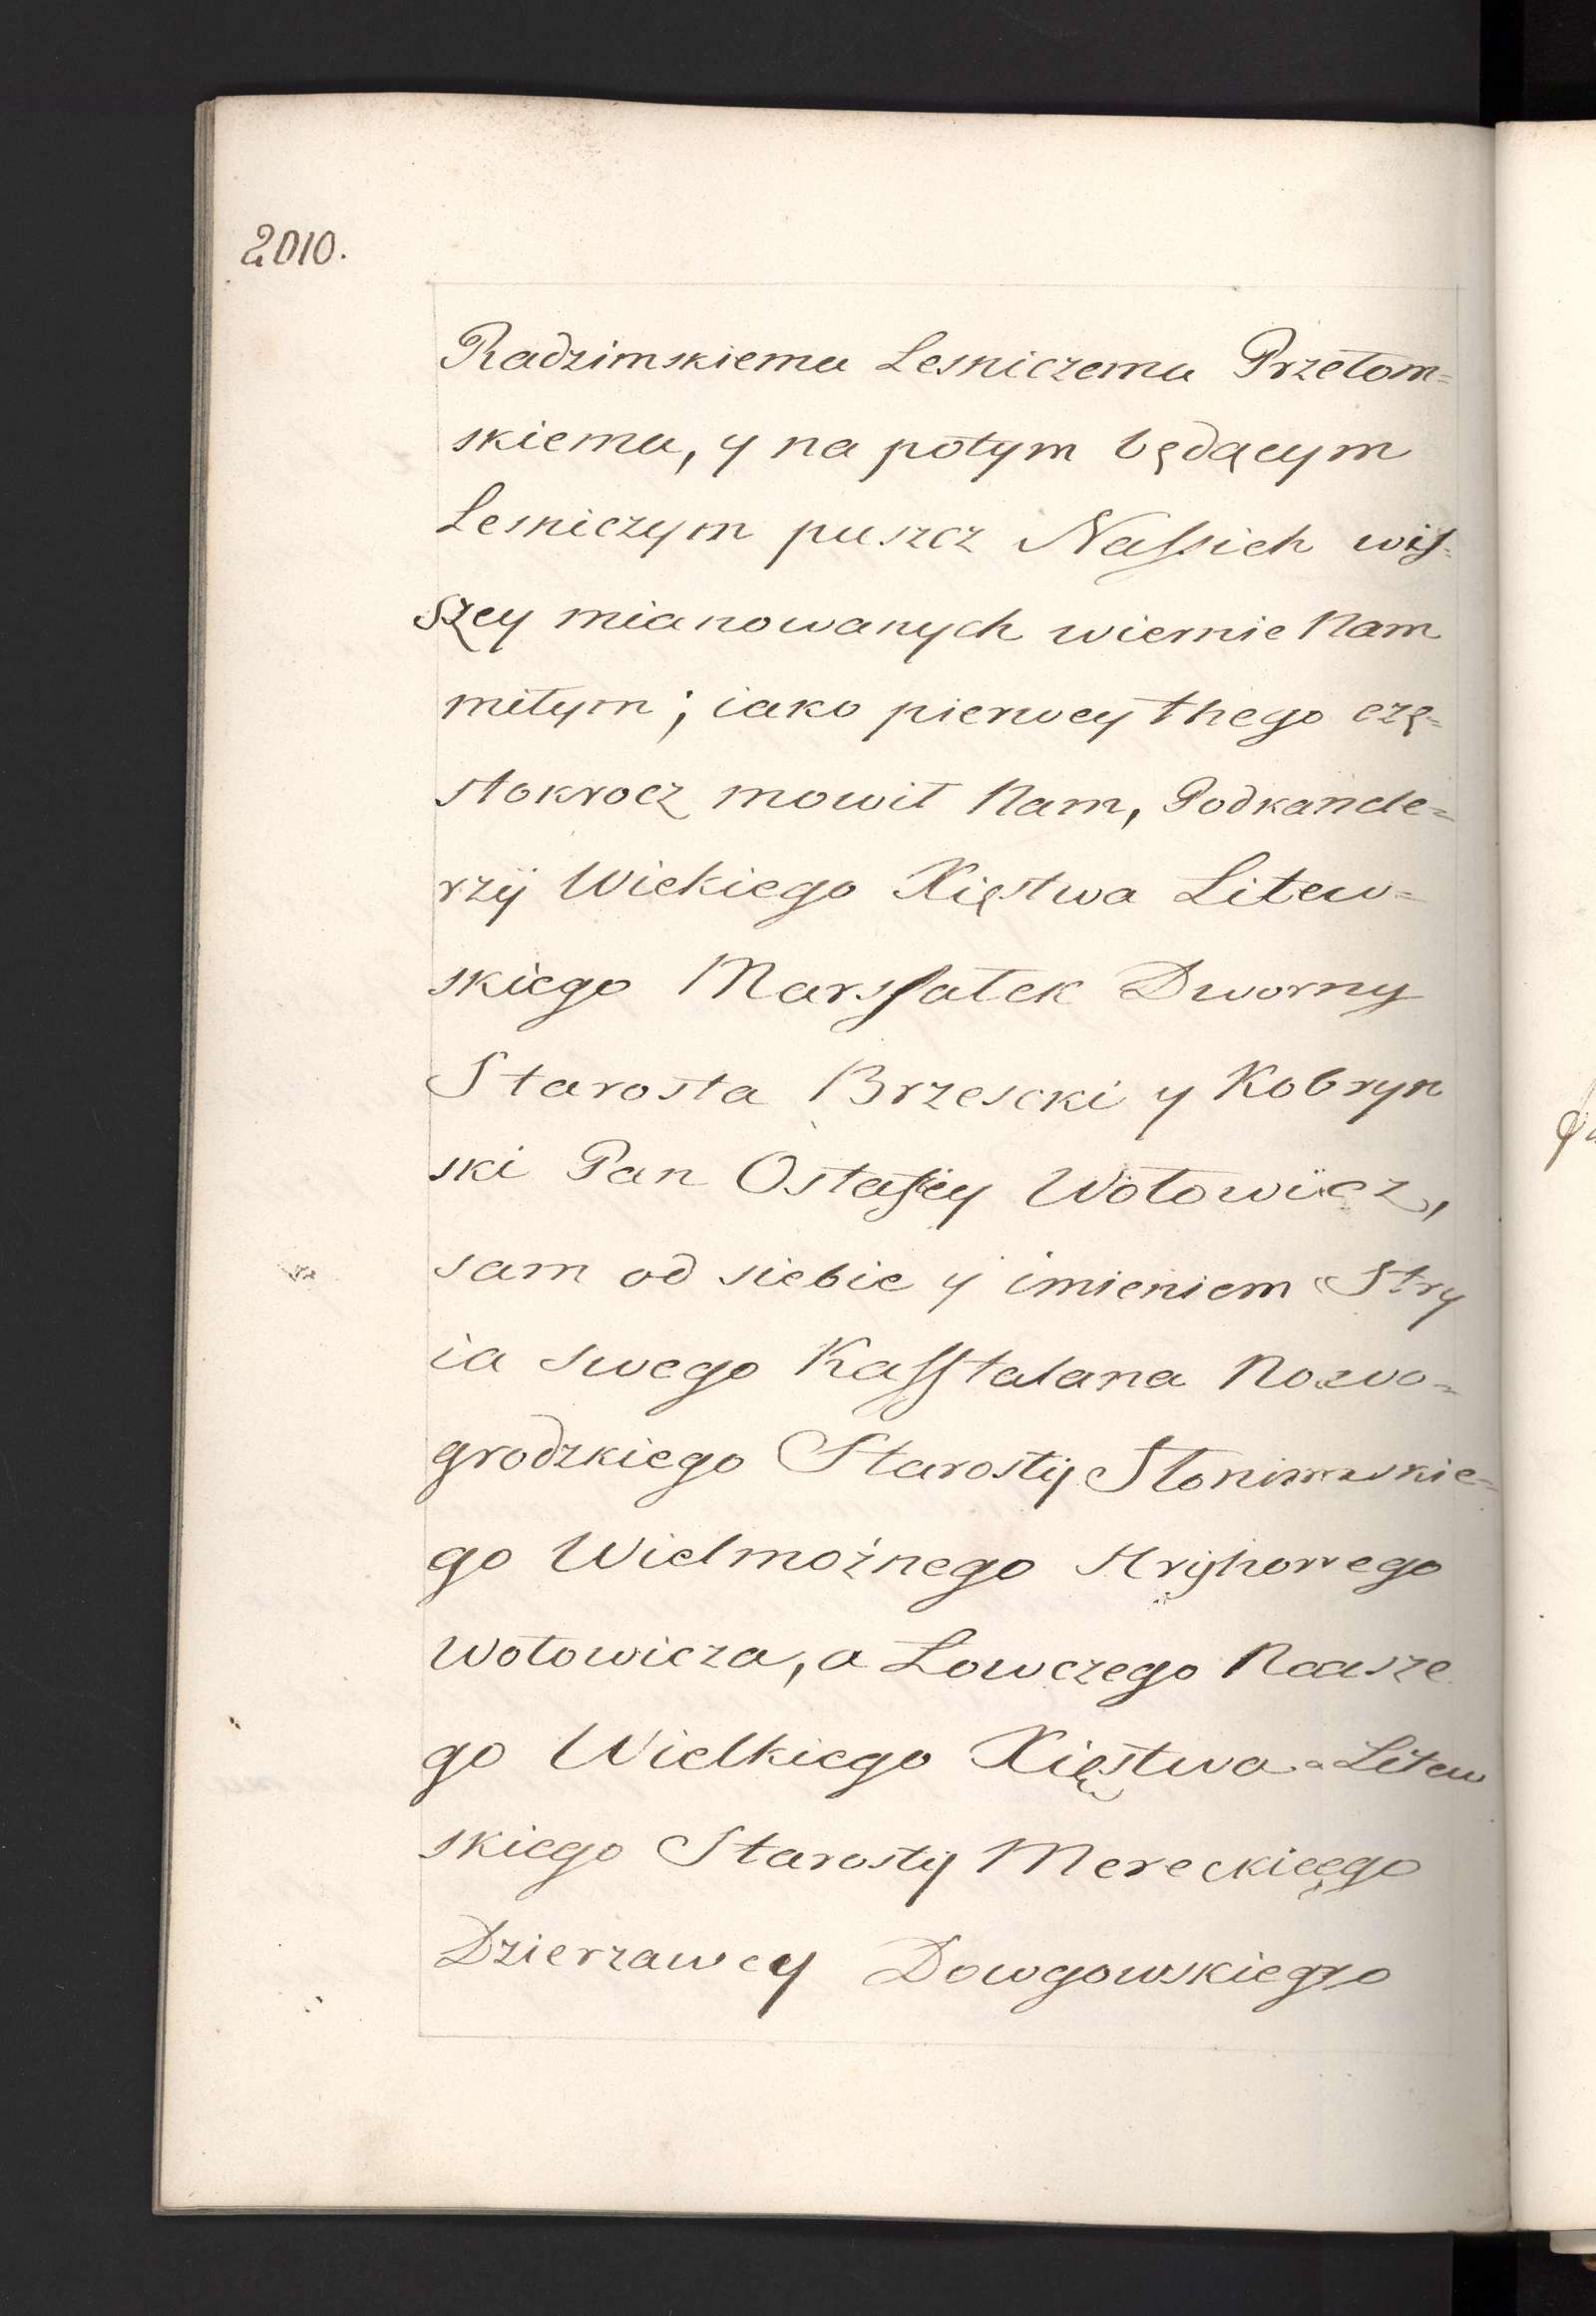 2010.
Radzimskiemu Lesniczemu Przełom=
skiemu, y na potym będącym
Lesniczym puszcz Naſsich wiſ=
szey mianowanych wiernie Nam
miłym; iako pierwey thego czę=
stokrocz mowił Nam, Podkancle=
rzÿ Wielkiego Xięstwa Litew=
skiego Marsſałek Dworny
Starosta Brzescki y Kobryn
ski Pan Ostafiey Wołowicz,
sam od siebie y imieniem Stry
ia swego Kaſſtalana Nowo=
grodzkiego Starostÿ Słonimskie=
go Wielmożnego Hrÿhorego
Wołowicza, a Lowczego Nasze
go Wielkiego Xięstwa Litew
skiego Starostÿ Mereckiego
Dzierzawcy Dowgowskiego